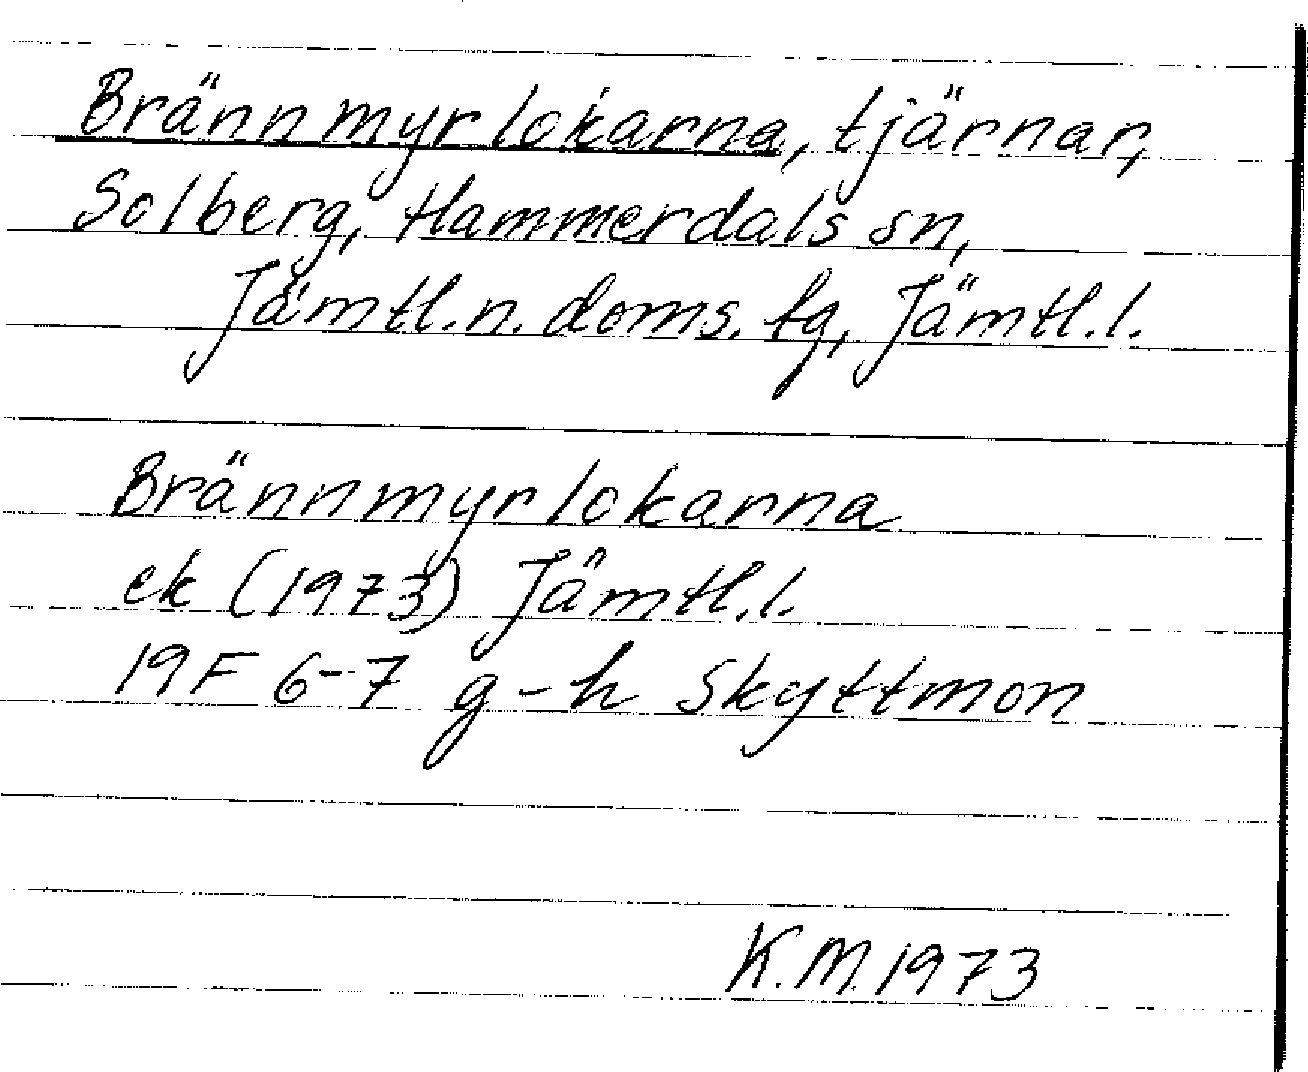 Brännmyrlokarna, tjärnar,
Solberg, Hammerdals sn,
Jämtl.n. doms. fg, Jämtl.l.
Brännmyrlokarna
ek (1973) Jämtl.l.
19F 6-7 g-h Skyttmon
K.M. 1973